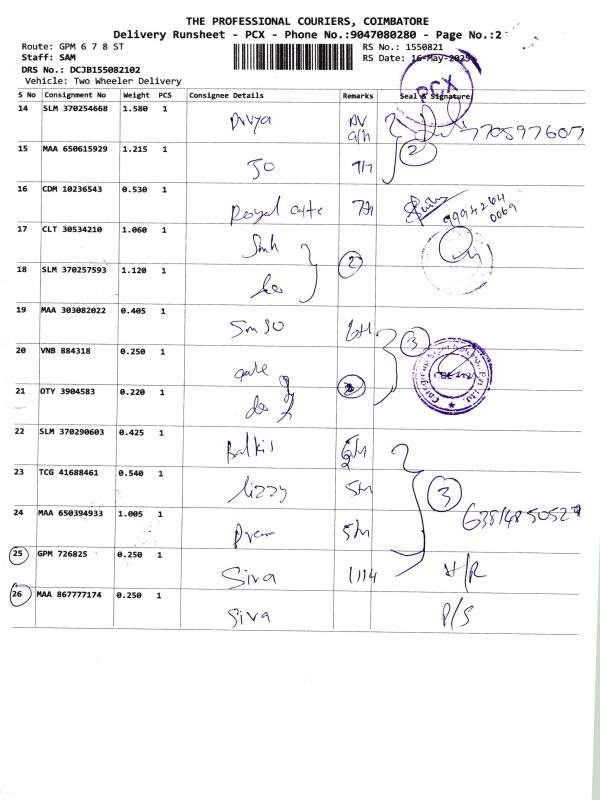 THE PROFESSIONAL COURIERS, COIMBATORE
Delivery Runsheet - PCX - Phone No.:9047080280 - Page No.:2
Route: GPM 6 7 8 ST RS No.: 1550821
Staff: SAM RS Date: 16-May-2025
DRS No.: DCJB155082102
Vehicle: Two Wheeler Delivery
PCX
S No Consignment No Weight PCS Consignee Details Remarks Seal & Signature
14 SLM 370254668 1.580 1 Divya
15 MAA 650615929 1.215 1 Jo 9th 2
16 CDM 10236543 0.530 1 Royal cafe 7th 9994264
0069
17 CLT 30534210 1.060 1
18 SLM 370257593 1.120 1 do 2
19 MAA 303082022 0.405 1 Sm30 6th 3
20 VNB 884318 0.250 1
21 OTY 3904583 0.220 1 do
22 SLM 370290603 0.425 1 Balkis
23 TCG 41688461 0.540 1 lizzy 5th 3
24 MAA 650394933 1.005 1 Prem 5th
25 GPM 726825 0.250 1 Siva 1114 H/R
26 MAA 867777174 0.250 1 Siva P/S